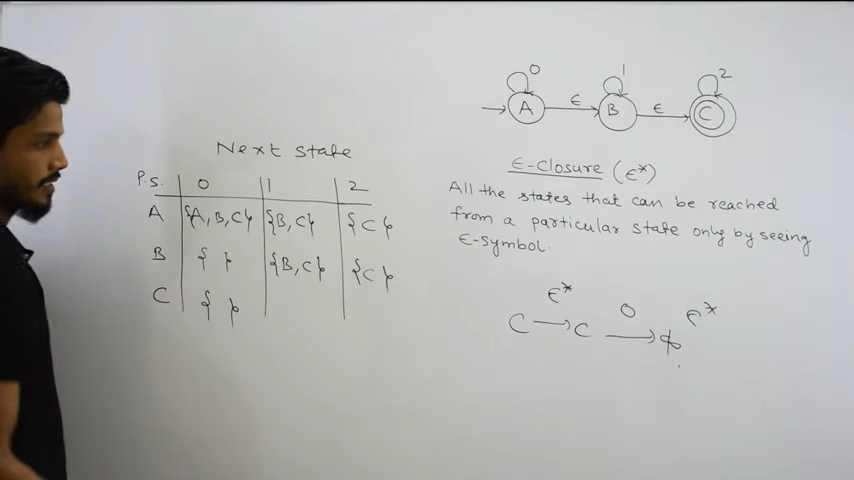 0 1 2
A ε B ε C
Next state
P.S. 0 1 2
A {A, B, C} {B, C} {C}
B { } {B, C} {C}
C { }
ε-closure (ε*)
All the states that can be reached
from a particular state only by seeing
ε-symbol.
ε* 0 ε*
C → C → ϕ